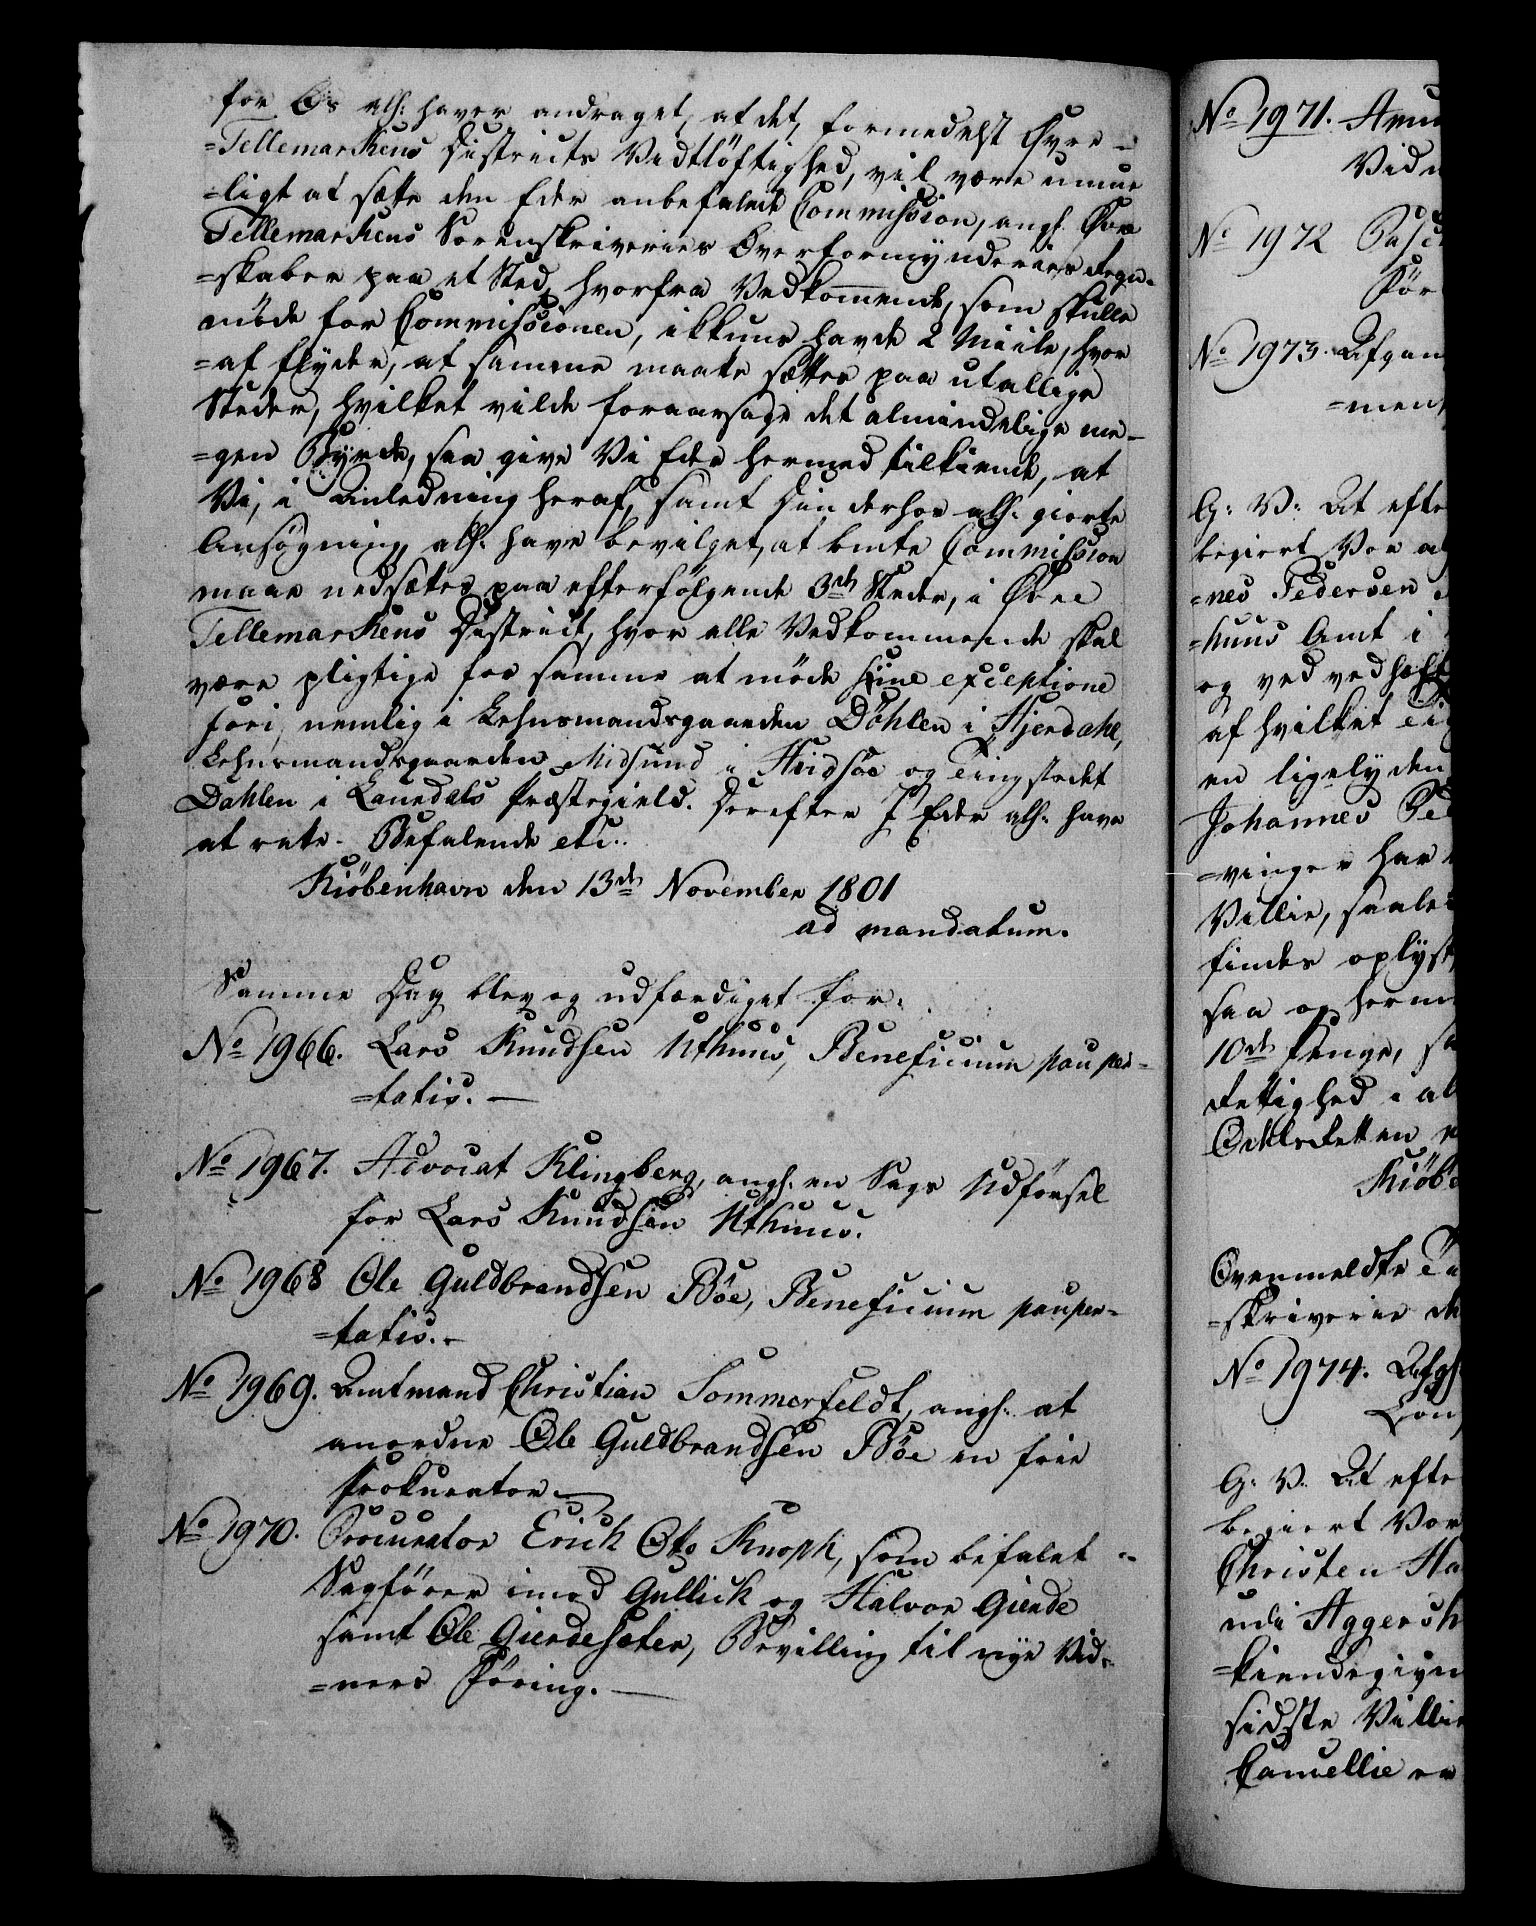 for Os alh: haver andraget, at det, formedelst Øvre-
=Tellemarkens Districts Vidtlöftighed, vil være umue
=ligt at sætte den Eder anbefalede Commission, angl. Øvre
Tellemarkens Sorenskriveries Overformynderies Regn-
=skaber paa et Sted, hvorfra Vedkommende, som skulle
møde for Commissionen, ikkuns havde 2 Miile, hvor
=af flyder, at samme maatte sættes paa utallige
Steder, hvilket vilde foraarsage det almindelige me-
=gen Byrde, saa give Vi Eder hermed tilkiende, at
Vi, i Anledning heraf, samt Din derhos alh: giorte
Ansøgning, alh: have bevilget, at bmte Commission
maae nedsættes paa efterfølgende 3de Steder, i Øvre
Tellemarkens District, hvor alle Vedkommende skal
være pligtige for samme at møde sine exceptione
fori, nemlig i Lehnsmandsgaarden Döhlen i Hjerdahl,
Lehnsmandsgaarden Midsund i Hvidsøe og Tingstedet
Dahlen i Laurdals Præstegield. Derefter I Eder alh: have
at rette. Befalende etc.
Kiöbenhavn den 13de November 1801
ad mandatum.
Samme Dag blev og udfærdiget for:
No 1966. Lars Knudsen Uthuus, Beneficium pauper-
=tatis. —
No 1967. Advocat Klingberg, angl. en Sags Udførsel
for Lars Knudsen Uthuus.
No 1968 Ole Guldbrandsen Böe, Beneficium pauper-
=tatis. -
No 1969. Amtmand Christian Sommerfeldt, angl. at
anordne Ole Guldbrandsen Böe en frie
Prokurator. —
No 1970. Procurator Erich Otto Knoph, som befalet
Sagfører imod Gullick og Halvor Gierde
samt Ole Gierdesæter, Bevilling til nye Vid-
=ners Føring. —
No 1971.
Vid
No 1972
No 1973. Afgan
=men
G: V: At efte
begiert Vor al
=nes Pedersen
=huus Amt i
og ved vedhæft
af hvilket
en ligelyden
Johannes Ped
=vinger har
Villie, saale
findes oplyst
saa og herm
10de Penge, sa
Rettighed i al
Odelsretten
Kiöbe
Ovenmeldte
=skriverie
No 1974.
G: V. At efte
begiert Vor
Christen Ha
udi Aggersh
=kiendegiven
sidste Villie
Cancellie en